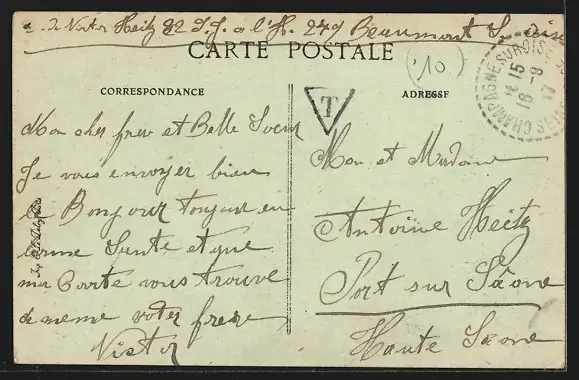 de Victor Heitz 82 I.J. a l'H. 249 Beaumont S. oise
CARTE POSTALE
10
CHAMPAGNE SUR OISE
15
16 -9
17
T
CORRESPONDANCE
ADRESSE
Mon cher frere et Belle Soeur
Je vous envoyer bien
le Bonjour toujour en
bonne Sante et que
ma Carte vous trouve
de meme voter frere
Victor
Mon et Madame
Antoine Heitz
Port sur Saône
Haute Saone